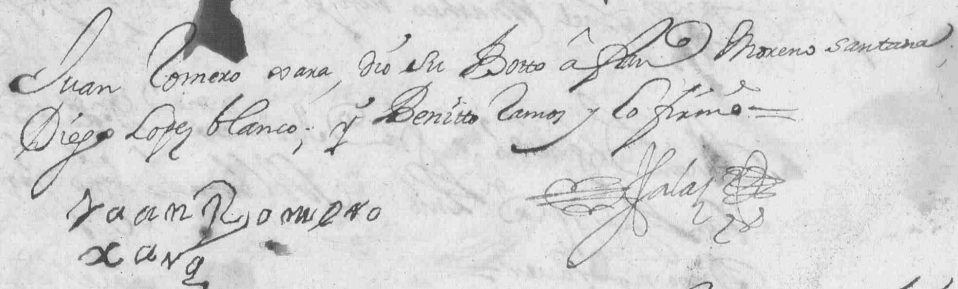 Juan Romero xara, dio su Botto â fran Moreno santana
Diego Lopez blanco; y Benitto Ramos y lo firmô
Juan Romero
xara
Salas